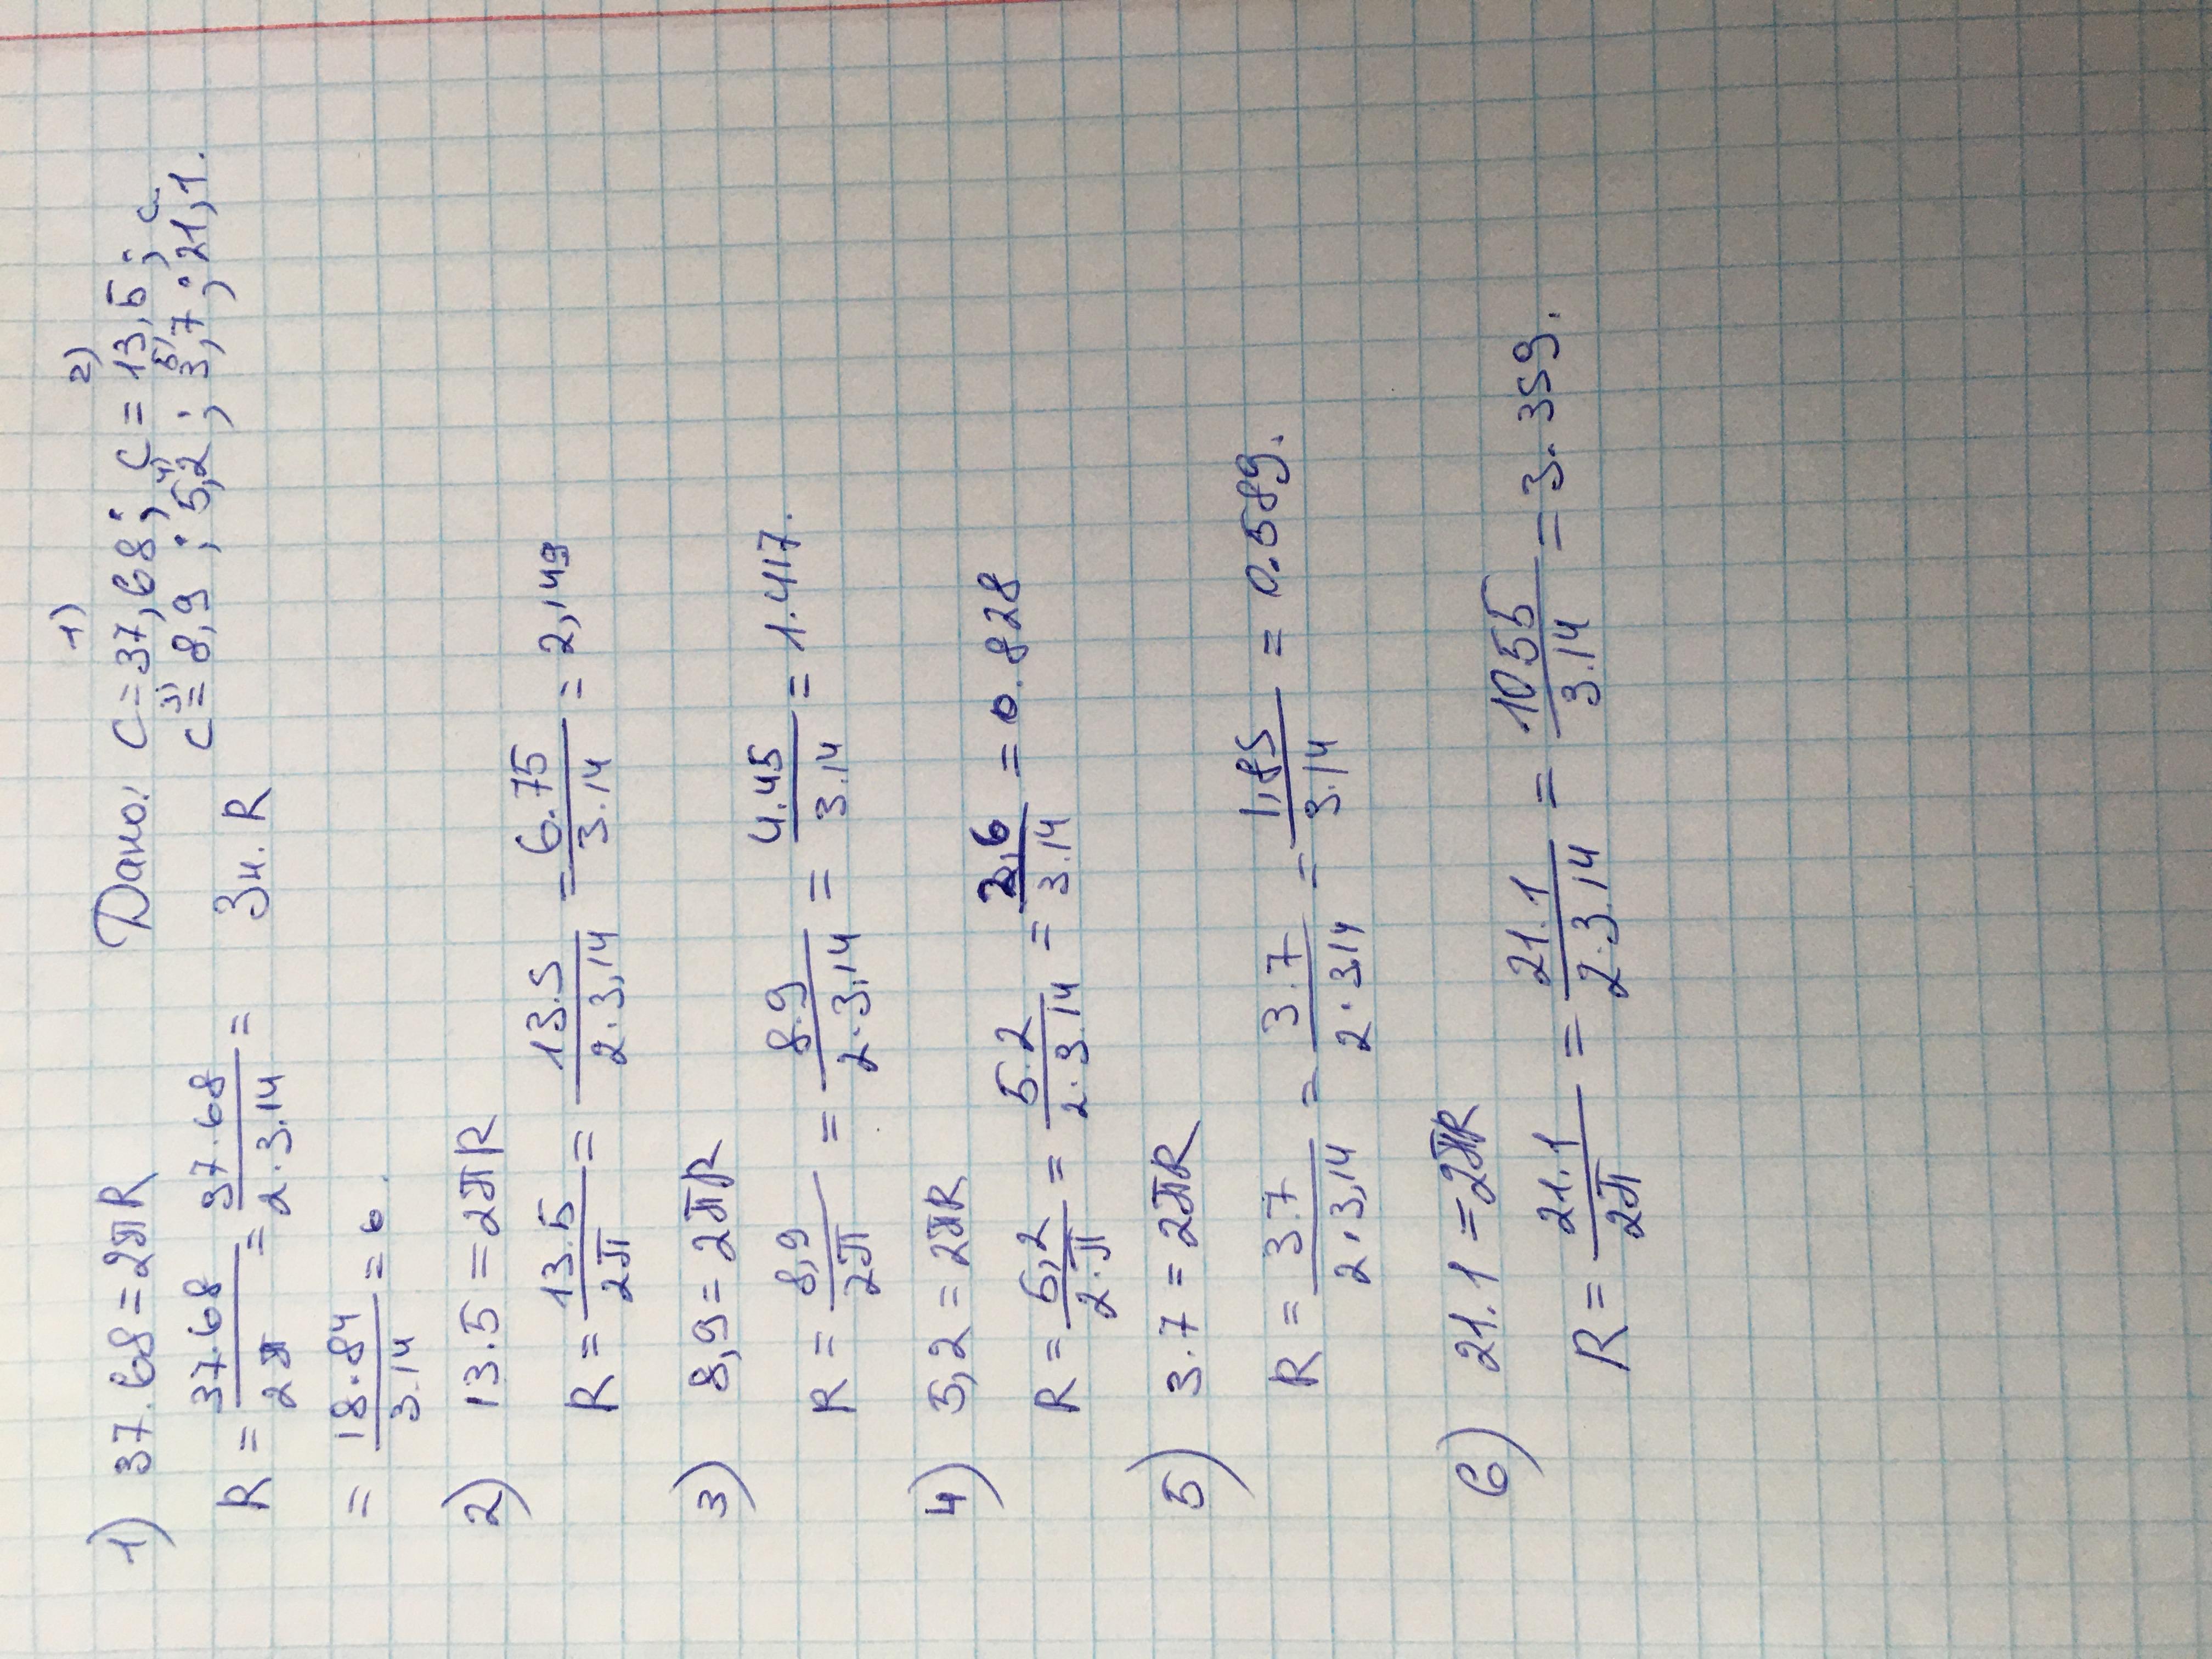 1) 2)
Дано: C=37,68; C=13,5; C
3) 4) 5)
C=8,9; 5,2; 3,7; 21,1.
Зн. R
1) 37.68=2πR
R = 37.68/2π = 37.68/2·3.14 =
= 18.84/3.14 = 6.
2) 13.5=2πR
R = 13.5/2π = 13.5/2·3,14 = 6.75/3.14 = 2,149
3) 8,9=2πR
R = 8,9/2π = 8.9/2·3,14 = 4.45/3.14 = 1.417.
4) 5,2=2πR
R = 5,2/2·π = 5.2/2·3.14 = 2,6/3.14 = 0.828
5) 3.7=2πR
R = 3.7/2·3,14 = 3.7/2·3,14 = 1,85/3.14 = 0.589.
6) 21.1=2πR
R = 21.1/2π = 21.1/2·3.14 = 10.55/3.14 = 3.359.